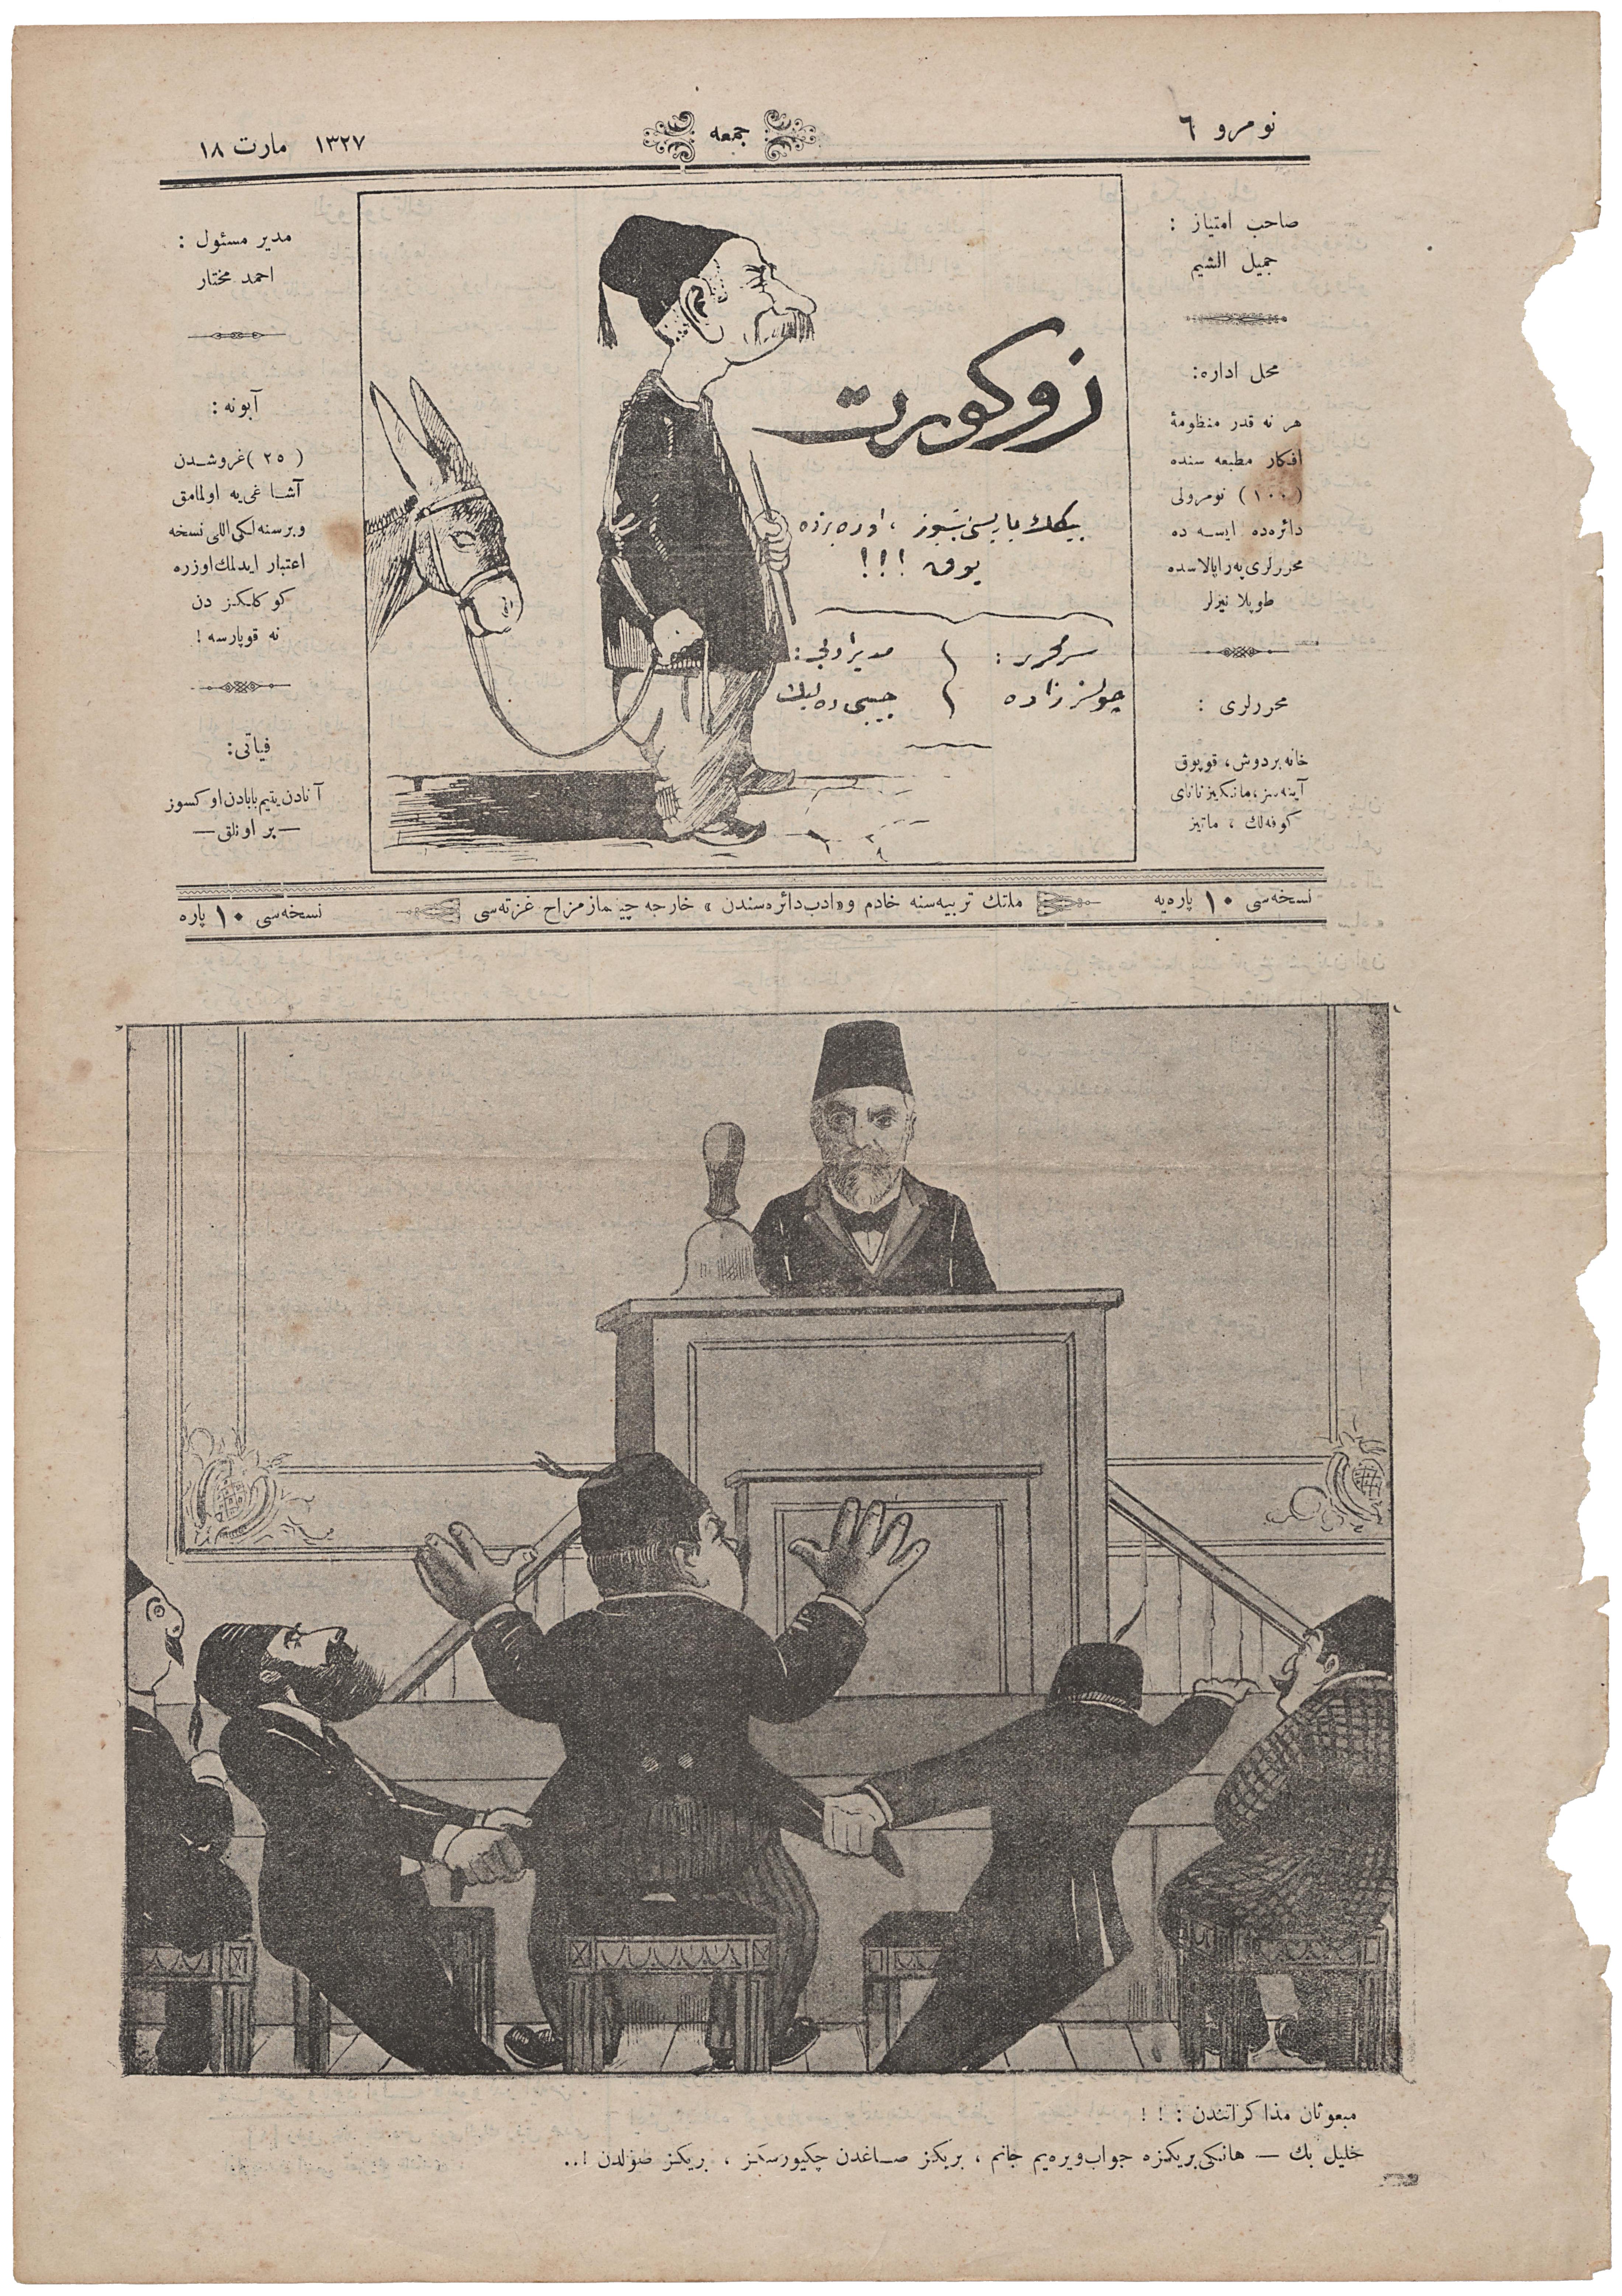 نومرو ٦
جمعه
١٣٢٧ مارت ١٨
صاحب امتیاز :
جمیل الشیم
محل اداره:
هر نه قدر منظومهٔ
افکار مطبعه سنده
(١٠٠) نومرولی
دائره‌ده ایسه ده
محررلری په‌راپالاسده
طوپلا نیرلر
محررلری :
خانه بردوش، قوپوق
آینه‌سز، مانکیز تاتای
کوفه‌لك ، ماتیز
زوکورت
بیكلك یاریسی بشیوز ، اوده بزده
یوق !!!
سرمحرر :
چولسز زاده
مدیر اولی :
جیبی ده‌لیك
مدیر مسئول :
احمد مختار
آبونه :
( ٢٥ ) غروشدن
آشا غی یه اولمامق
و برسنه‌لکی اللی نسخه
اعتبار ایدلمك اوزره
کو کلکز دن
نه قوپارسه !
فیاتی:
آنادن یتیم بابادن اوکسوز
— بر اونلق —
نسخه‌سی ١٠ پاره‌یه
ملتك تربیه‌سنه خادم و «ادب دائره‌سندن » خارجه چیقماز مزاح غزته‌سی
نسخه‌سی ١٠ پاره
مبعوثان مذاکراتندن : ! !
خلیل بك — هانکی بریکزه جواب ویره‌یم جانم ، بریکز صاغدن چکیورسکز ، بریکز صولدن !..